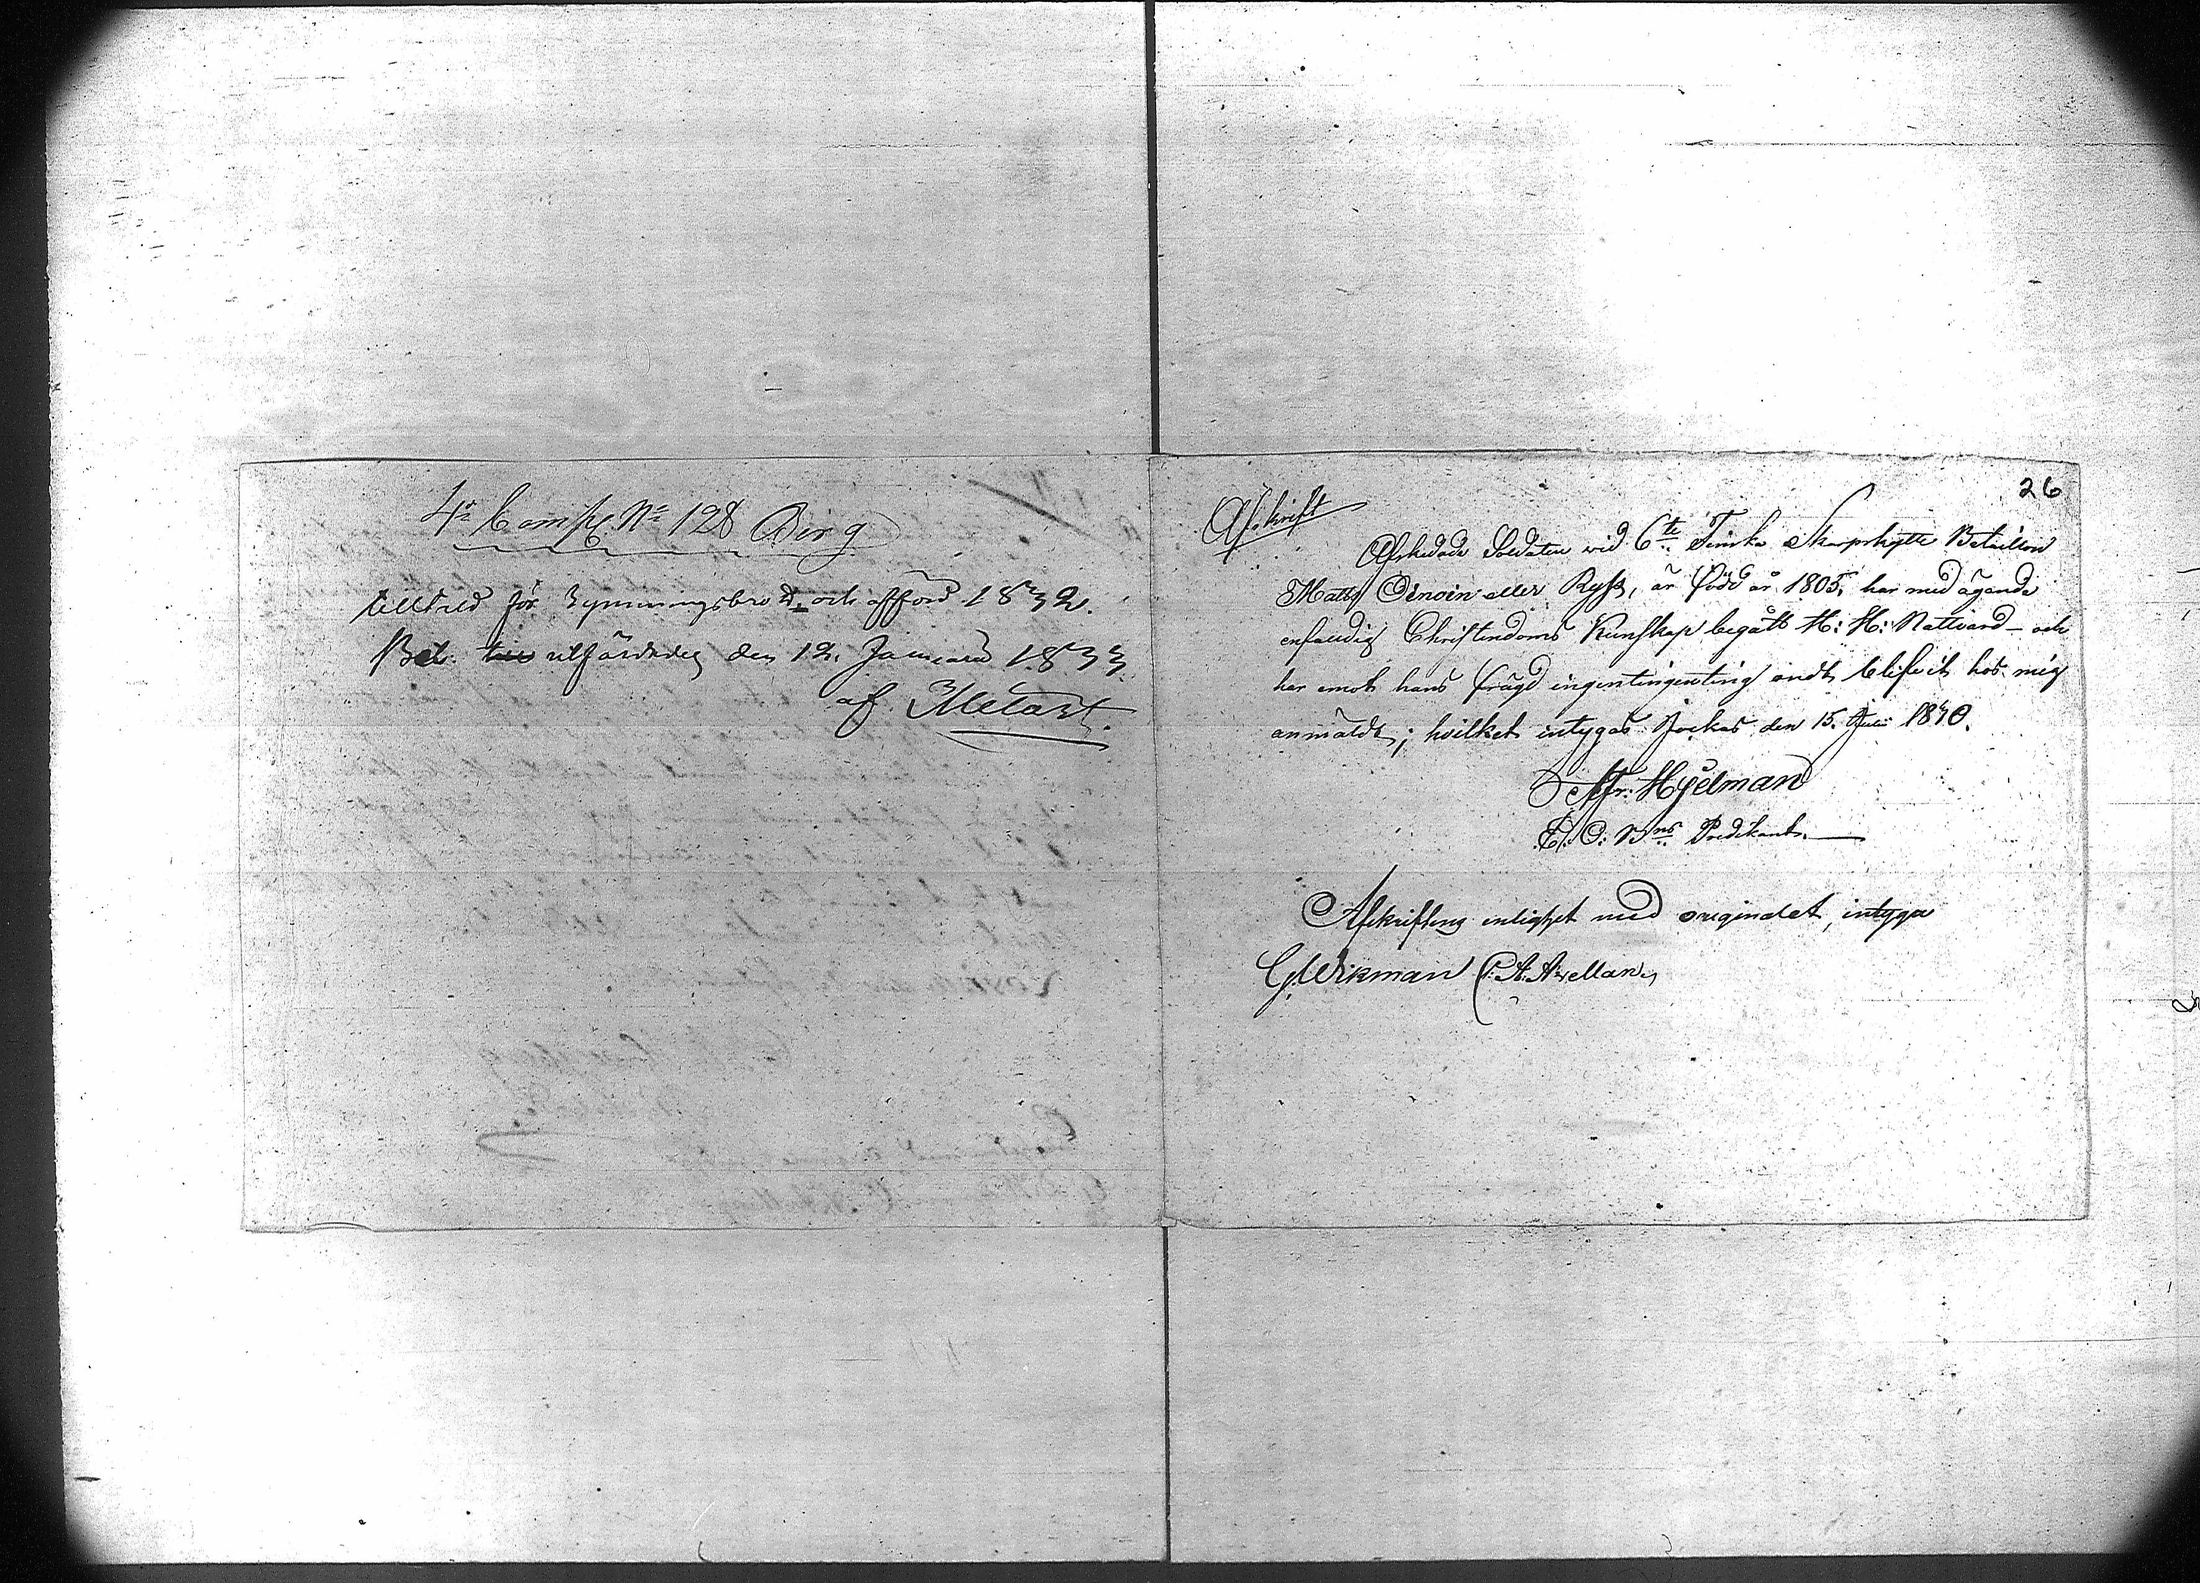 4r Comp. No 128 Berg
tilltald för Rymningsbrott och afförd 1832.
Bet. utfärdades den 12. Januarii 1833
af Melart.
26
Afskrift
Afskedade Soldaten vid 6te Finska Skarpskytte Bataillon
Matts Oinoin eller Ryss, är född år 1805, har med ägande
enfaldig Christendoms Kunskap begått H: H: Nattvard och
har emot hans frägd ingentingenting ondt blifvit hos mig
anmäldt; hvilket intygas Jockas den 15. Juli 1840.
Fr: Hjelman
E. O: Bns Predikant.
Afskriftens enlighet med originalet, intyga
G. Wikman C. A. Avellan